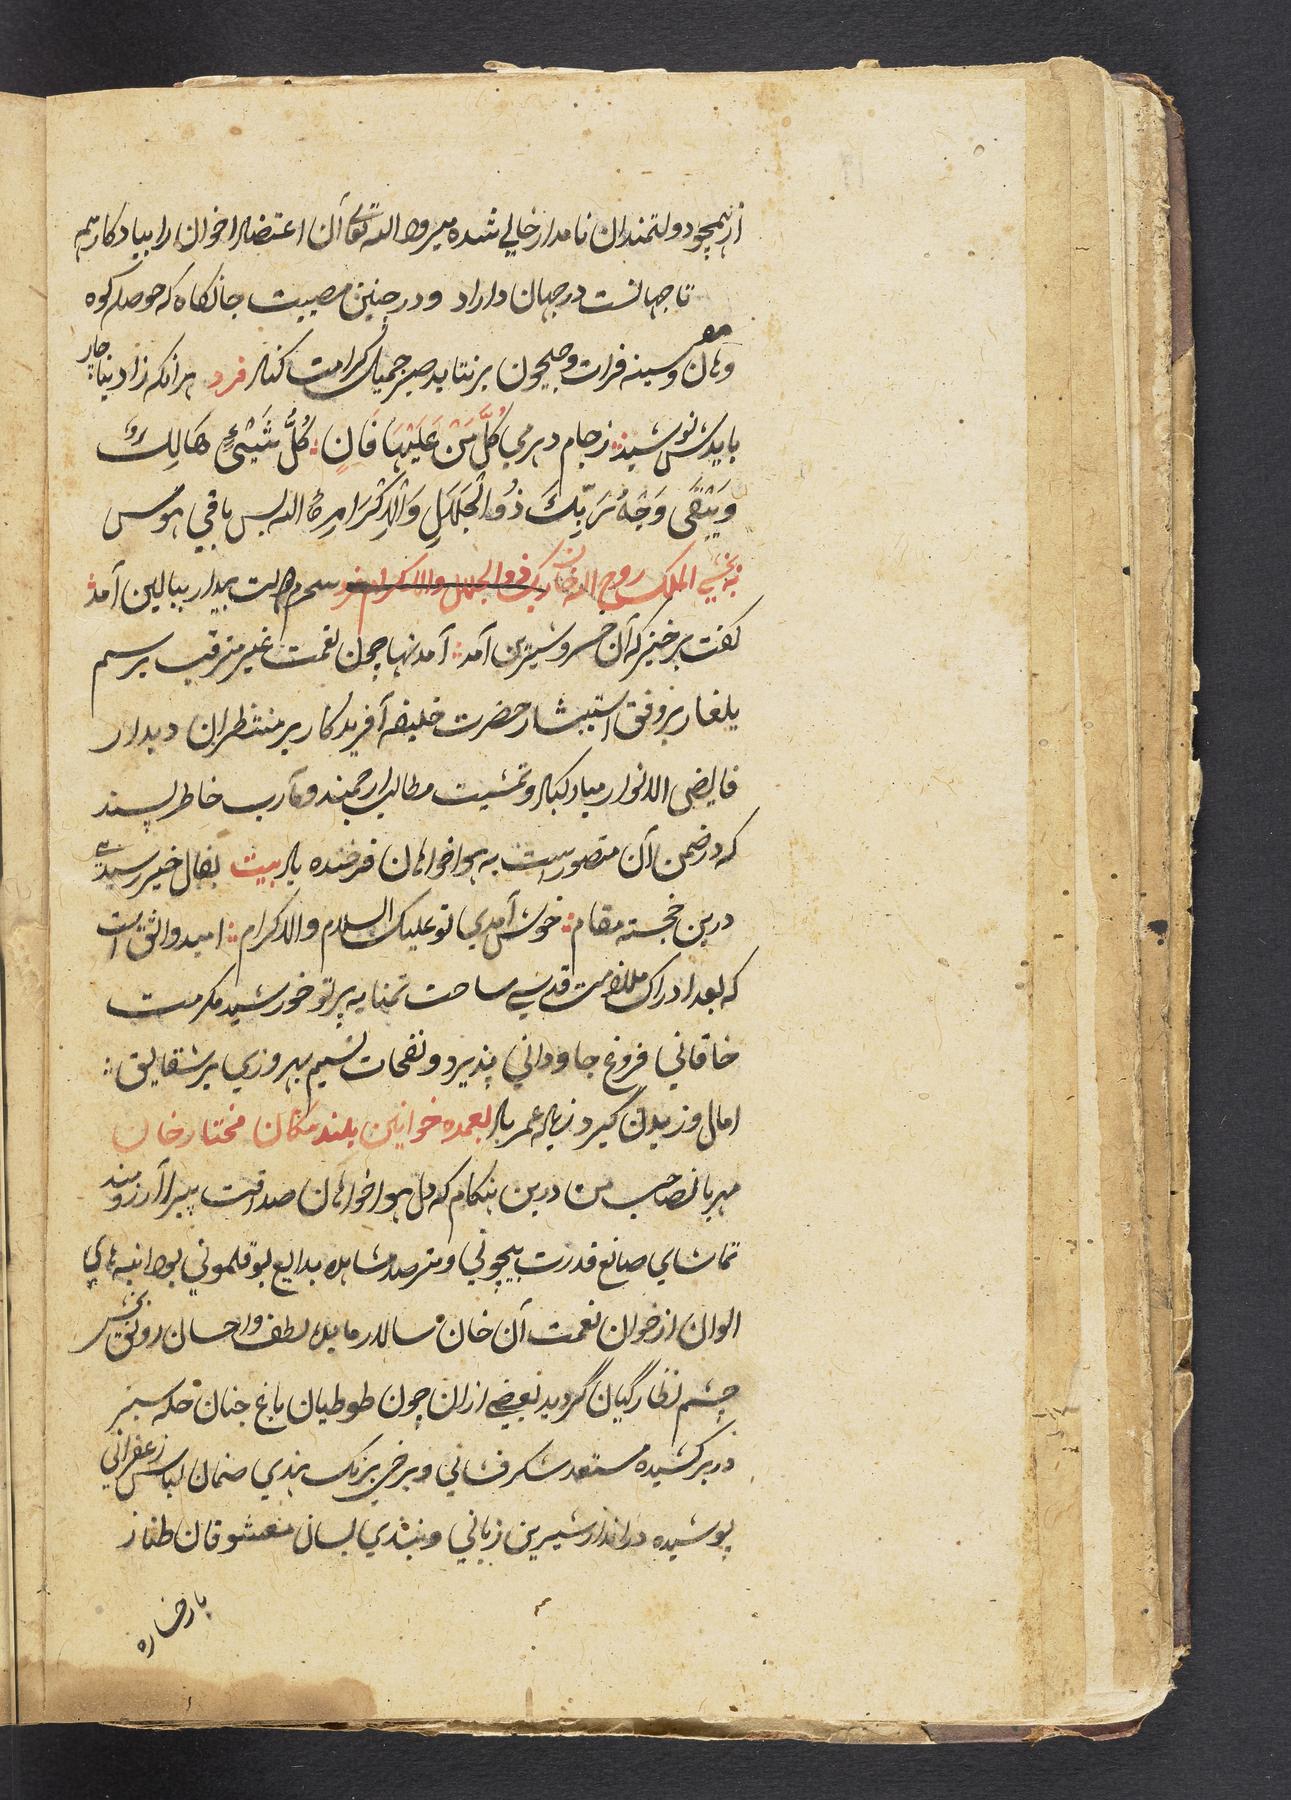 از همچو دولتمندان نامدار خالی شده میرود الله تعالی آن اعتضاد اخوان را بیادکار هم
تا جهانست در جهان داراد و در چنین مصیبت جانکاه که حوصله کوه
وهان وسینه فرات وجیحون برنتابد صبر جمیل کرامت کناد فرد هرانکه زاد بناچار
بایدش نوشید ز جام دهر می کُلُّ مَنْ عَلَیْهَا فَانٍ کُلُّ شَیْیءٍ هَالِكٌ
وَیَبْقَی وَجْهُ رَبِّكَ ذُو الْجَلَالِ وَالْاِکْرَامِ الله بس باقی هوس
به بخشی الملک روح الله خان ربک ذو الجلال والاکرام فرد سحرم دولت بیدار ببالین آمد
کفت برخیز که آن خسرو شیرین آمد آمدنها چون نعمت غیر مترقب برسم
یلغار بر وفق استبشار حضرت خلیفه آفریدکار بر منتظران دیدار
فایض الانوار مبارکباد و تمشیت مطالب ارجمند و مآرب خاطر پسند
که در ضمن آن متصور است به هواخواهان فرخنده باد بیت بفال خیر رسیدی
درین خجسته مقام خوش آمدی تو علیک السلام والاکرام امید واثق است
که بعد ادراک ملازمت قدسی ساحت تمنا به پرتو خورشید مکرمت
خاقانی فروغ جاودانی پذیرد و نفحات نسیم بهروزی بر شقایق
امال وزیدن گیرد زیاده عمر باد بعمده خوانین بلند مکان مختار خان
مهربان صاحب من درین هنکام که دل هواخواهان صداقت پیرا آرزومند
تماشای صنایع قدرت بیچونی و مترصد مشاهده بدایع بوقلمونی بود انبه های
الوان از خوان نعمت آن خان سالار مایده لطف و احسان رونق بخش
چشم نظارگیان گردید بعضی ازان چون طوطیان باغ جنان حله سبز
در بر کشیده مستعد شکرفشانی و برخی برنک هندی صنمان لباس زعفرانی
پوشیده در انداز شیرین زبانی و بندی بسان معشوقان طناز
بارخساره